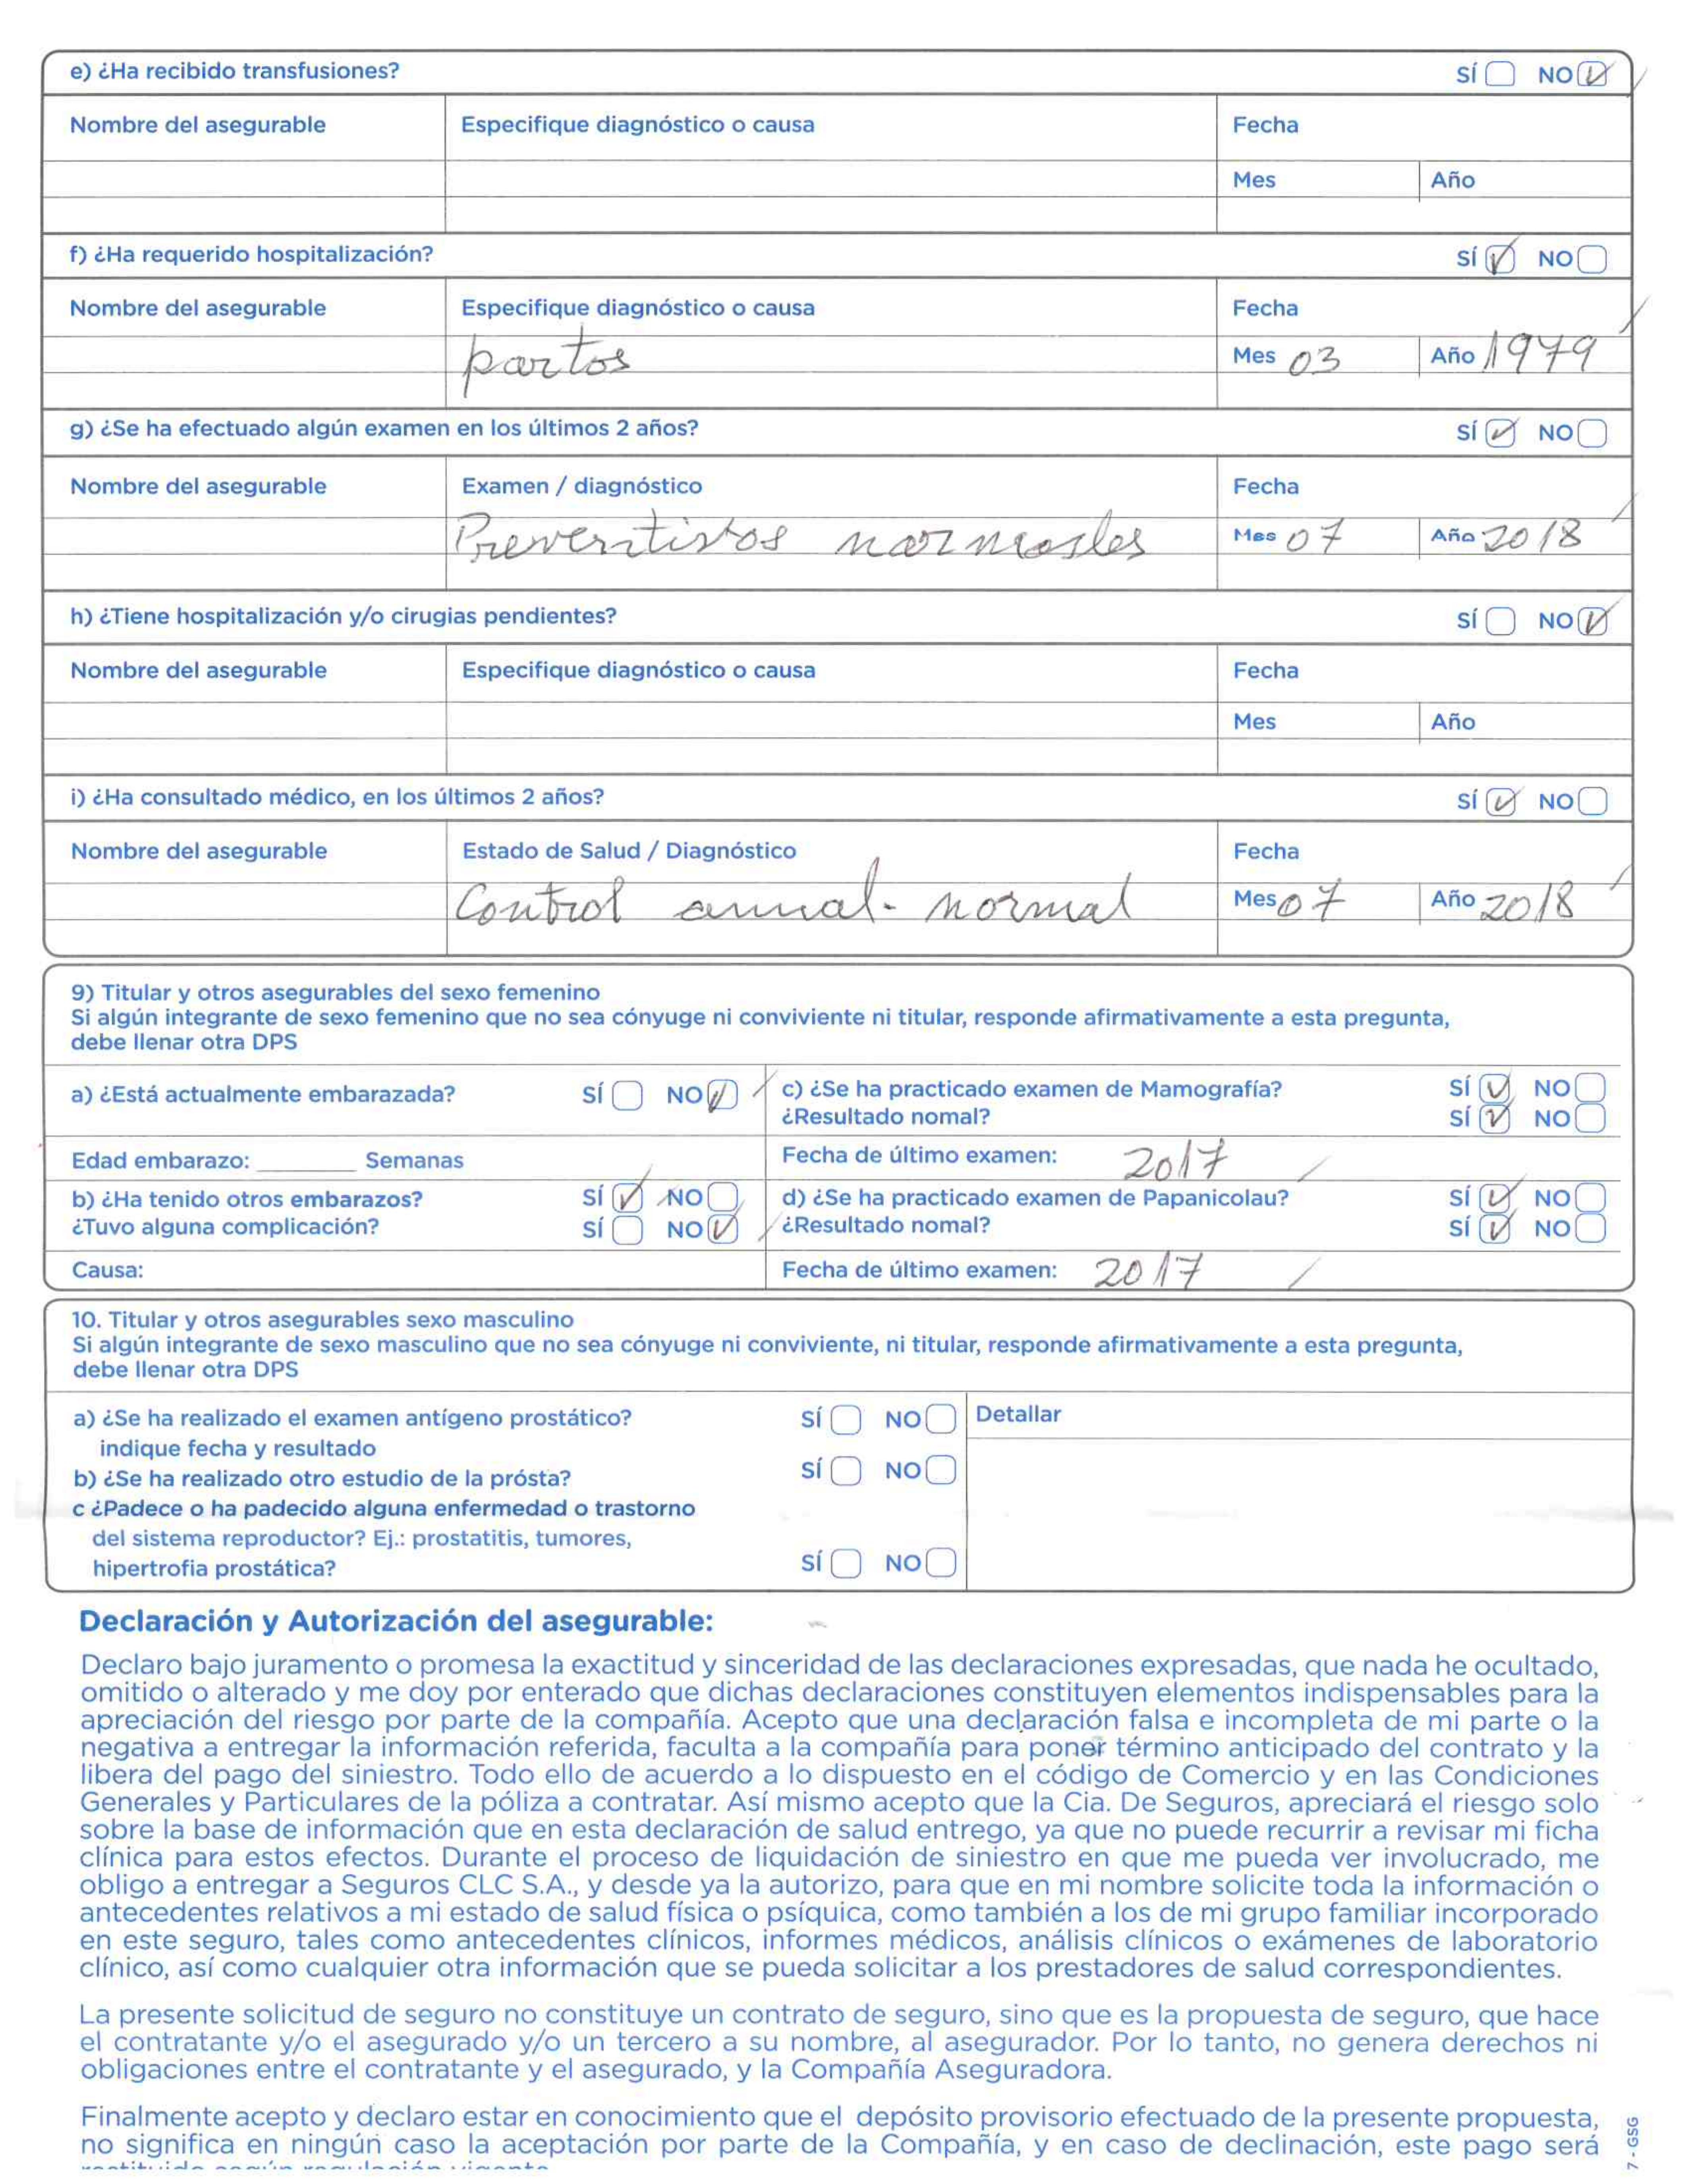 e) ¿Ha recibido transfusiones? SÍ NO
Nombre del asegurable Especifique diagnóstico o causa Fecha
Mes Año
f) ¿Ha requerido hospitalización? SÍ NO
Nombre del asegurable Especifique diagnóstico o causa Fecha
partos Mes 03 Año 1979
g) ¿Se ha efectuado algún examen en los últimos 2 años? SÍ NO
Nombre del asegurable Examen / diagnóstico Fecha
Preventivos normales Mes 07 Año 2018
h) ¿Tiene hospitalización y/o cirugias pendientes? SÍ NO
Nombre del asegurable Especifique diagnóstico o causa Fecha
Mes Año
i) ¿Ha consultado médico, en los últimos 2 años? SÍ NO
Nombre del asegurable Estado de Salud / Diagnóstico Fecha
Control annual - normal Mes 07 Año 2018
9) Titular y otros asegurables del sexo femenino
Si algún integrante de sexo femenino que no sea cónyuge ni conviviente ni titular, responde afirmativamente a esta pregunta,
debe llenar otra DPS
a) ¿Está actualmente embarazada? SÍ NO
Edad embarazo: ________ Semanas
b) ¿Ha tenido otros embarazos? SÍ NO
¿Tuvo alguna complicación? SÍ NO
Causa:
c) ¿Se ha practicado examen de Mamografía? SÍ NO
¿Resultado nomal? SÍ NO
Fecha de último examen: 2017
d) ¿Se ha practicado examen de Papanicolau? SÍ NO
¿Resultado nomal? SÍ NO
Fecha de último examen: 2017
10. Titular y otros asegurables sexo masculino
Si algún integrante de sexo masculino que no sea cónyuge ni conviviente, ni titular, responde afirmativamente a esta pregunta,
debe llenar otra DPS
a) ¿Se ha realizado el examen antígeno prostático? SÍ NO Detallar
indique fecha y resultado
b) ¿Se ha realizado otro estudio de la prósta? SÍ NO
c ¿Padece o ha padecido alguna enfermedad o trastorno
del sistema reproductor? Ej.: prostatitis, tumores,
hipertrofia prostática? SÍ NO
Declaración y Autorización del asegurable:
Declaro bajo juramento o promesa la exactitud y sinceridad de las declaraciones expresadas, que nada he ocultado,
omitido o alterado y me doy por enterado que dichas declaraciones constituyen elementos indispensables para la
apreciación del riesgo por parte de la compañía. Acepto que una declaración falsa e incompleta de mi parte o la
negativa a entregar la información referida, faculta a la compañía para poner término anticipado del contrato y la
libera del pago del siniestro. Todo ello de acuerdo a lo dispuesto en el código de Comercio y en las Condiciones
Generales y Particulares de la póliza a contratar. Así mismo acepto que la Cia. De Seguros, apreciará el riesgo solo
sobre la base de información que en esta declaración de salud entrego, ya que no puede recurrir a revisar mi ficha
clínica para estos efectos. Durante el proceso de liquidación de siniestro en que me pueda ver involucrado, me
obligo a entregar a Seguros CLC S.A., y desde ya la autorizo, para que en mi nombre solicite toda la información o
antecedentes relativos a mi estado de salud física o psíquica, como también a los de mi grupo familiar incorporado
en este seguro, tales como antecedentes clínicos, informes médicos, análisis clínicos o exámenes de laboratorio
clínico, así como cualquier otra información que se pueda solicitar a los prestadores de salud correspondientes.
La presente solicitud de seguro no constituye un contrato de seguro, sino que es la propuesta de seguro, que hace
el contratante y/o el asegurado y/o un tercero a su nombre, al asegurador. Por lo tanto, no genera derechos ni
obligaciones entre el contratante y el asegurado, y la Compañía Aseguradora.
Finalmente acepto y declaro estar en conocimiento que el depósito provisorio efectuado de la presente propuesta,
no significa en ningún caso la aceptación por parte de la Compañía, y en caso de declinación, este pago será
7 - GSG